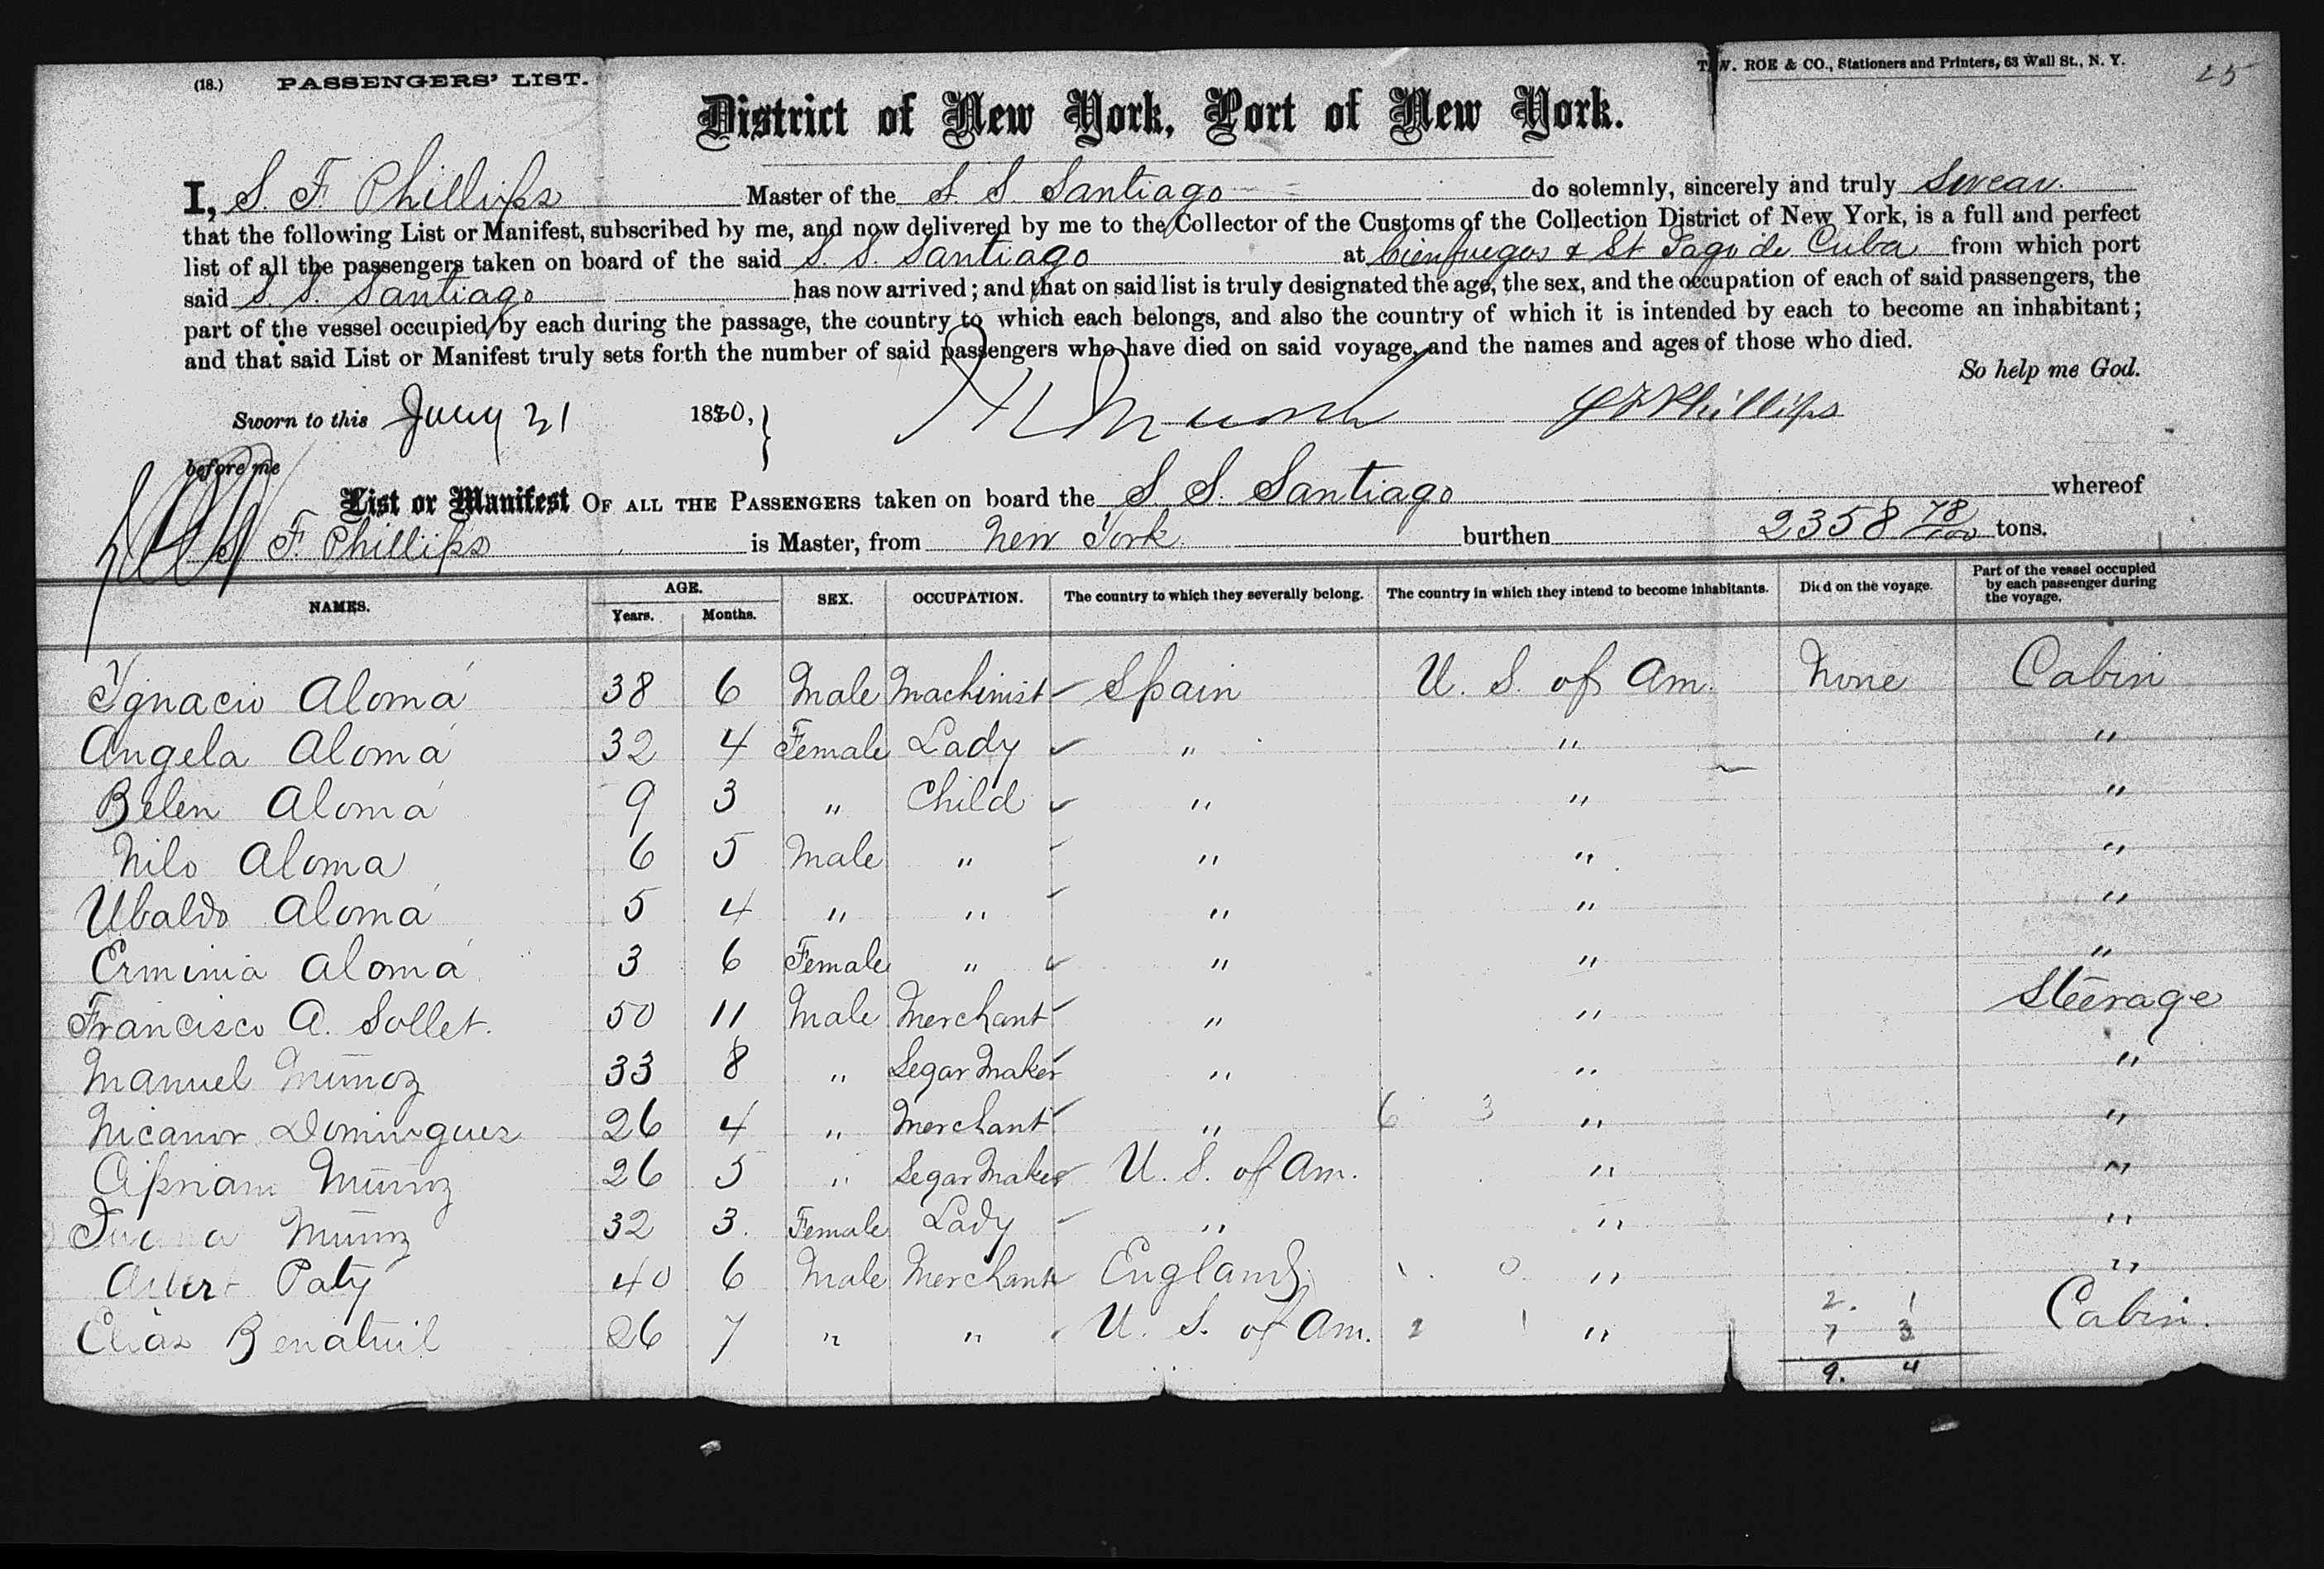 (18.) PASSENGERS' LIST.
T. W. ROE & CO., Stationers and Printers, 63 Wall St., N. Y. 25
District of New York, Port of New York.
I, S. F. Phillips Master of the S. S. Santiago do solemnly, sincerely and truly Swear.
that the following List or Manifest, subscribed by me, and now delivered by me to the Collector of the Customs of the Collection District of New York, is a full and perfect
list of all the passengers taken on board of the said S. S. Santiago at Cienfuegos & St Jago de Cuba from which port
said S. S. Santiago has now arrived; and that on said list is truly designated the age, the sex, and the occupation of each of said passengers, the
part of the vessel occupied by each during the passage, the country to which each belongs, and also the country of which it is intended by each to become an inhabitant;
and that said List or Manifest truly sets forth the number of said passengers who have died on said voyage, and the names and ages of those who died.
So help me God.
Sworn to this 1880, S F Phillips
before me
List or Manifest OF ALL THE PASSENGERS taken on board the S. S. Santiago whereof
S. F. Phillips is Master, from New York burthen 2358 78/100 tons.
NAMES. AGE. Years. Months. SEX. OCCUPATION. The country to which they severally belong. The country in which they intend to become inhabitants. Died on the voyage. Part of the vessel occupied by each passenger during the voyage.
Ygnacio Alomá 38 6 Male Machinist Spain U. S. of Am. None Cabin
Angela Alomá 32 4 Female Lady " " "
Belen Alomá 9 3 " Child " " "
Nilo Aloma 6 5 Male " " " "
Ubaldo Alomá 5 4 " " " " "
Erminia Alomá 3 6 Female " " " "
Francisco A. Sollet. 50 11 Male Merchant " " Steerage
Manuel Munoz 33 8 " Segar Maker " " "
Nicanor Domingues 26 4 " Merchant " 6 3 " "
Munoz 26 5 " Segar Maker U. S. of Am. " "
Munoz 32 3. Female Lady " " "
Paty 40 6 Male Merchant England " "
Elias Benatuil 26 7 " " U. S. of Am. 2 1 " Cabin.
2. 1
7 3
9. 4